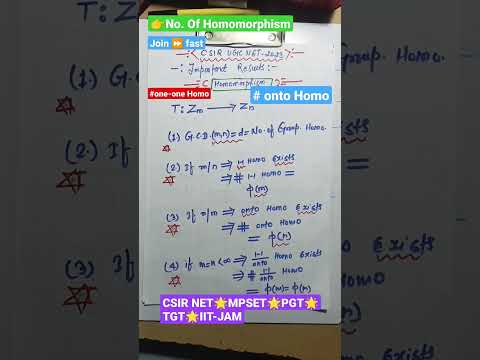 👉 No. Of Homomorphism
Join ⏩ fast
CSIR UGC NET-2023
-: Important Results:-
Homomorphism
#one-one Homo
# onto Homo
T: Zm → Zn
(1) G.C.D.(m,n)=d= No. of Group. Homo.
(2) If m/n ⇒ 1-1 Homo Exists
⇒ # 1-1 Homo =
ϕ(m)
(3) If n/m ⇒ onto Homo Exists
⇒ # onto Homo
= ϕ(n)
(4) if m=n<∞ ⇒ 1-1 onto Homo Exists
⇒ # 1-1 onto Homo
= ϕ(m)= ϕ(n)
CSIR NET🌟MPSET🌟PGT🌟
TGT🌟IIT-JAM